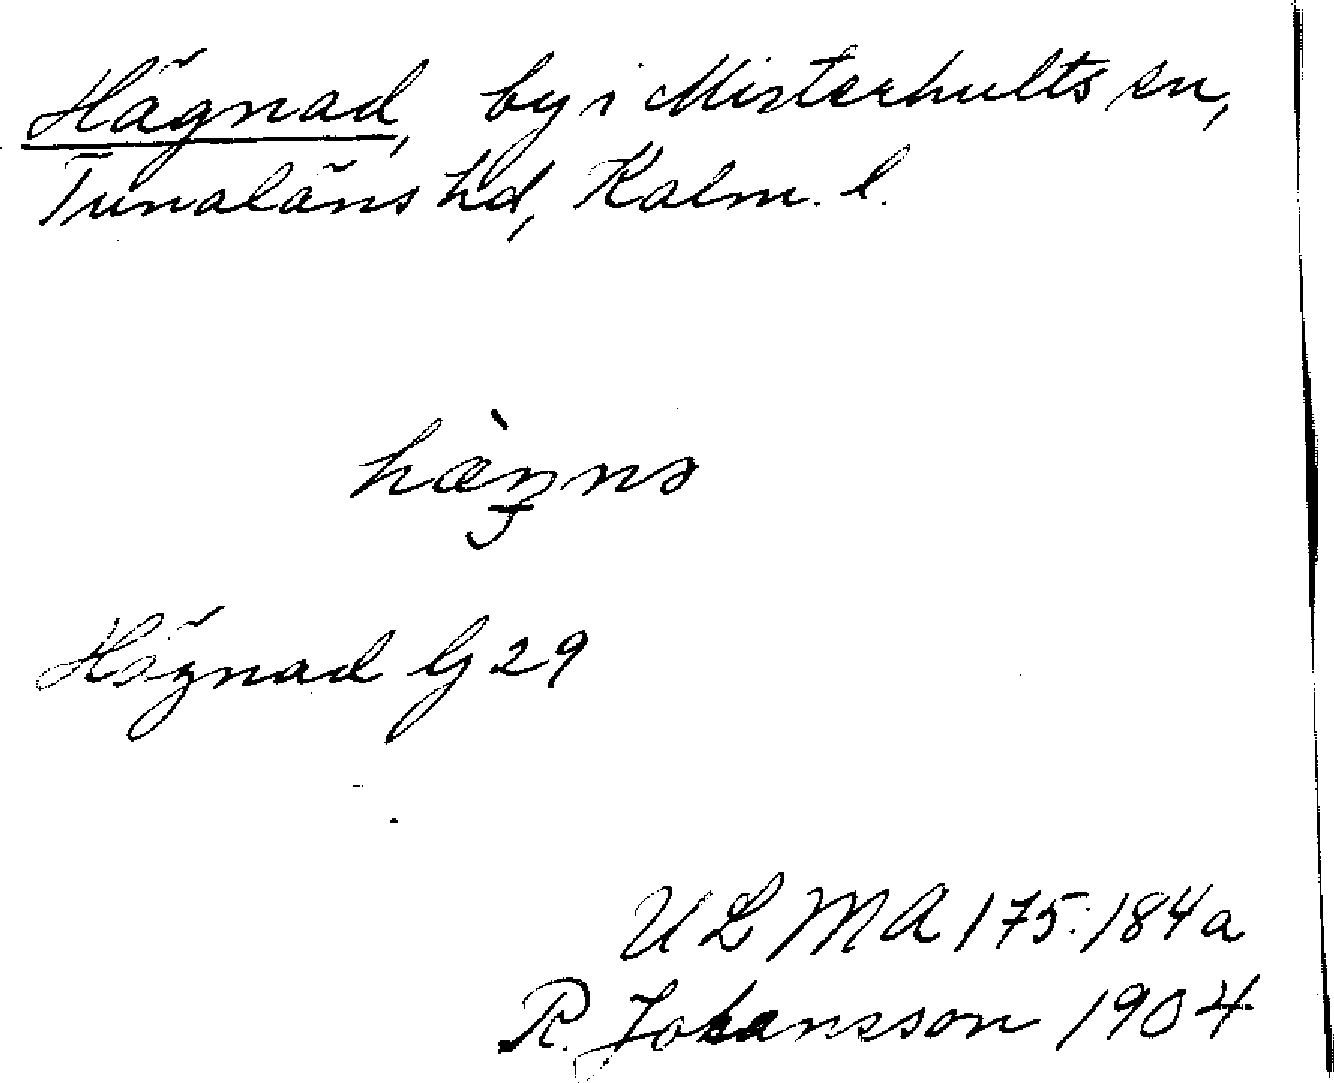 Hägnad, by i Misterhults sn,
Tunaläns hd, Kalm. l.
Hägnad G 29
ULMA 175:184a
R. Johansson 1904